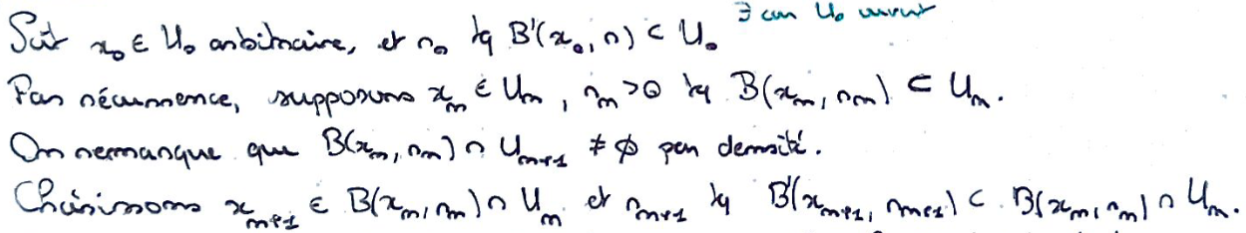 ∃ car U₀ ouvert
Soit x₀ ∈ U₀ arbitraire, et r₀ tq B'(x₀, r) ⊂ U₀
Par récurrence, supposons xₙ ∈ Uₙ, rₙ > 0 tq B(xₙ, rₙ) ⊂ Uₙ.
On remarque que B(xₙ, rₙ) ∩ Uₙ₊₁ ≠ ∅ par densité.
Choisissons xₙ₊₁ ∈ B(xₙ, rₙ) ∩ Uₙ et rₙ₊₁ tq B'(xₙ₊₁, rₙ₊₁) ⊂ B(xₙ, rₙ) ∩ Uₙ.